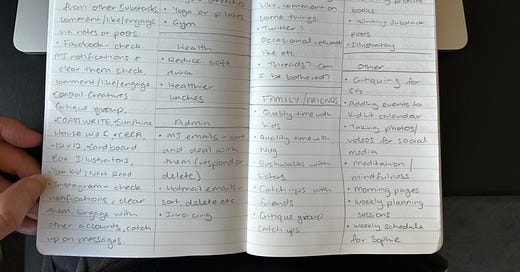 from other Substacks
comment/like/engage
via notes or posts.
• Facebook - check
MJ notifications &
clear them check,
comment/like/engage
Coastal Creatives
Critique group,
COASTWRITE, Sunshine
House WC, CBCA,
12x12, Cardboard
Box Illustrators,
Your Kid's Next Read
• Instagram - check
notifications & clear
them. Engage with
other accounts, catch
up on messages
• Yoga or pilates
• Gym
Health
• Reduce soft
drink
• Healthier
lunches
Admin
• MJ emails - sort
and deal with
them (respond or
delete)
• Hotmail emails -
sort, delete etc
• Invoicing
like, comment on
some things.
• Twitter?
Occasional retweet/
like etc.
• Threads? Can
I be bothered?
FAMILY/FRIENDS
• Quality time with
kids
• Quality time with
Nug
• Bushwalks with
sisters
• Catch ups with
friends
• Critique group
catch ups
books
• Writing Substack
posts
• Illustrating
Other
• Critiquing for
CPs
• Adding events to
kidlit calendar
• Taking photos/
videos for social
media
• meditation/
mindfulness
• morning pages
• weekly planning
sessions
• weekly schedule
for Sophie